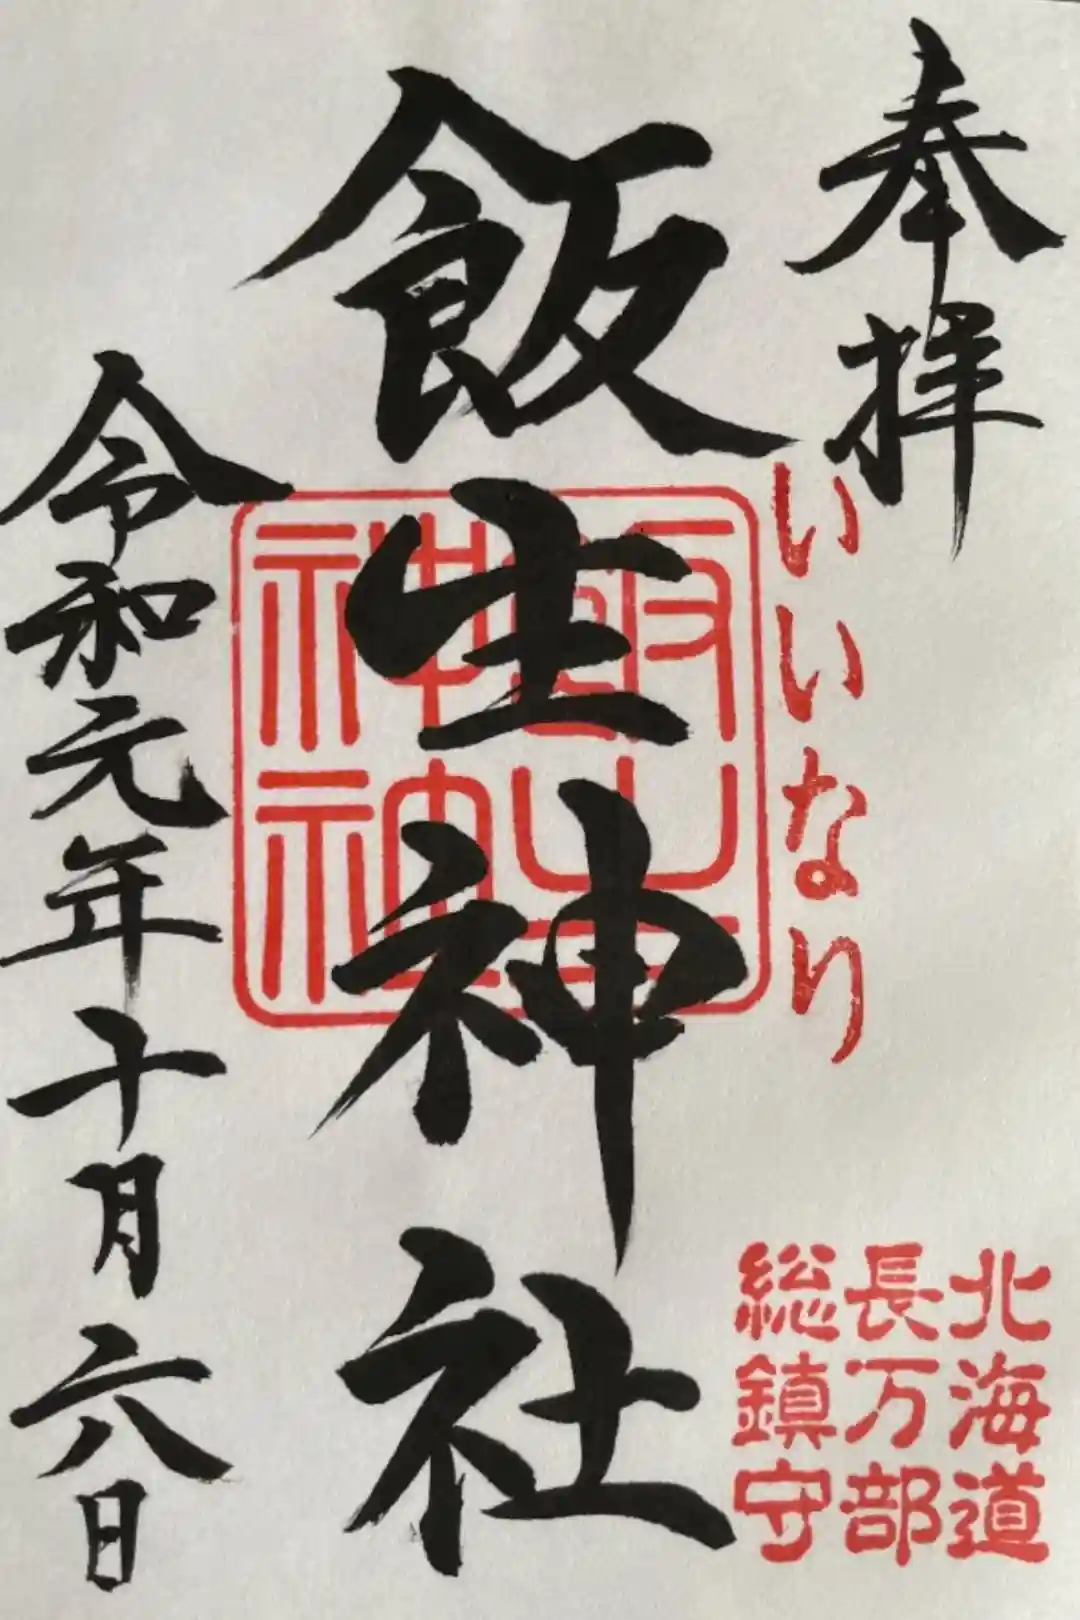 奉拝
いいなり
北海道
長万部
総鎮守
飯生神社
飯生
神社
令和元年十月六日